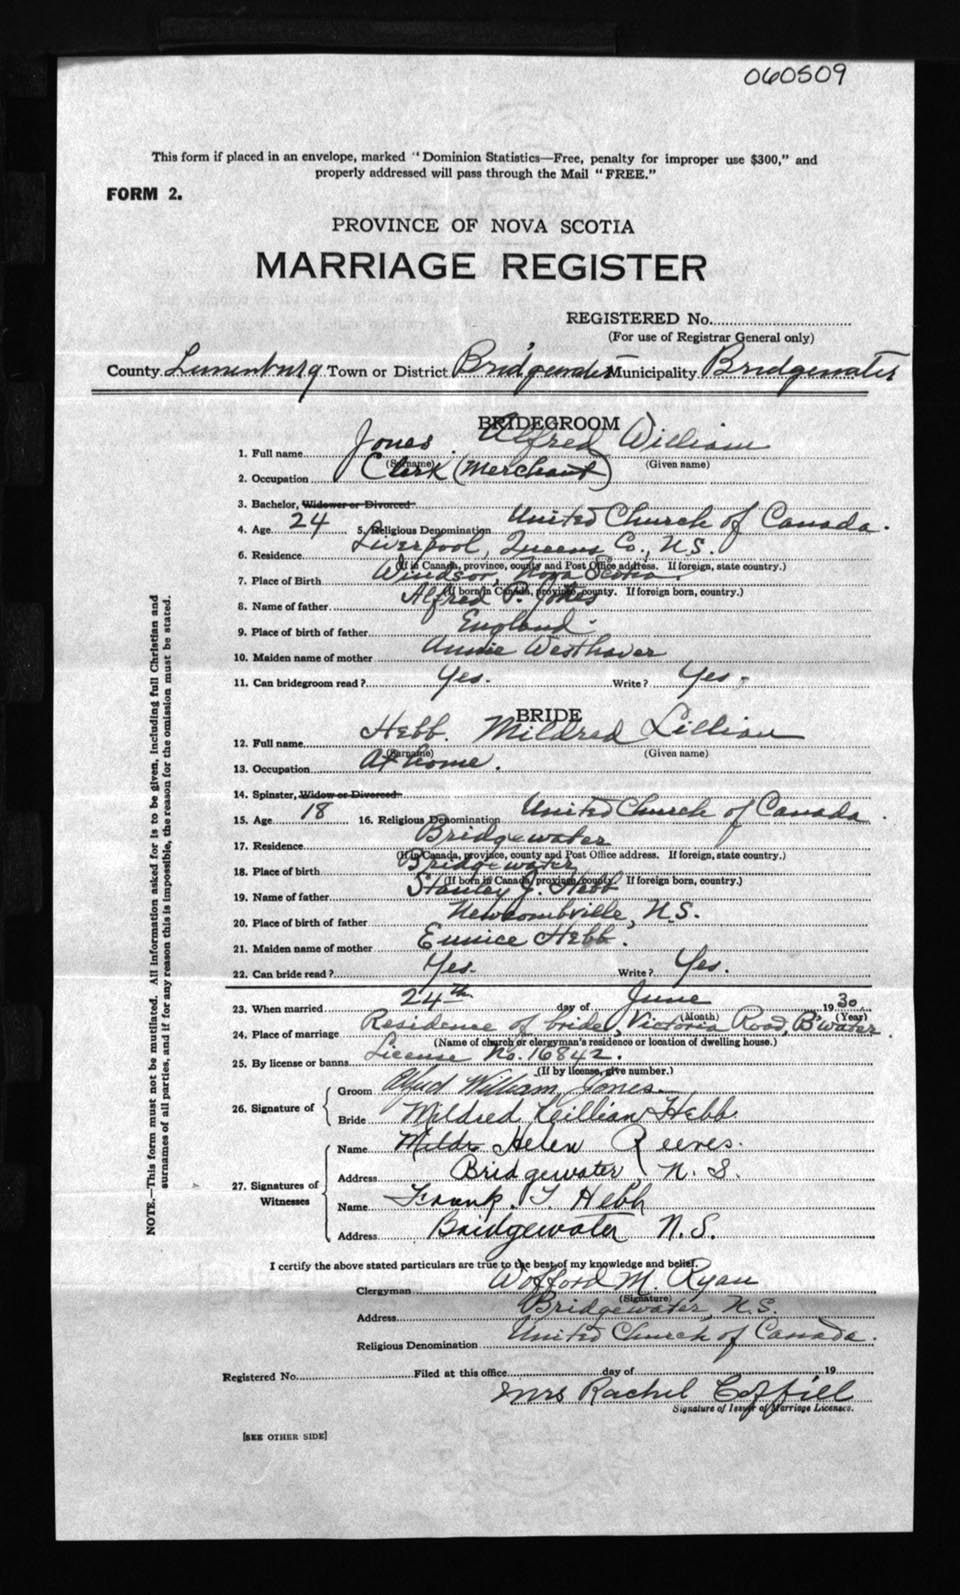 060509
This form if placed in an envelope, marked "Dominion Statistics—Free, penalty for improper use $300," and
properly addressed will pass through the Mail "FREE."
FORM 2.
PROVINCE OF NOVA SCOTIA
MARRIAGE REGISTER
REGISTERED No.
(For use of Registrar General only)
County Lunenburg Town or District Bridgewater Municipality Bridgewater
BRIDEGROOM
1. Full name Jones Alfred William
(Surname) (Given name)
2. Occupation Clerk (Merchant)
3. Bachelor, Widower or Divorced
4. Age 24 5. Religious Denomination United Church of Canada.
6. Residence Liverpool, Queens Co., N.S.
(If in Canada, province, county and Post Office address. If foreign, state country.)
7. Place of Birth Windsor, Nova Scotia.
(If born in Canada, province, county. If foreign born, country.)
8. Name of father Alfred P. Jones
9. Place of birth of father England.
10. Maiden name of mother Annie Westhaver
11. Can bridegroom read? Yes. Write? Yes.
BRIDE
12. Full name Hebb. Mildred Lillian
(Surname) (Given name)
13. Occupation At home.
14. Spinster, Widow or Divorced
15. Age 18 16. Religious Denomination United Church of Canada.
17. Residence Bridgewater
(If in Canada, province, county and Post Office address. If foreign, state country.)
18. Place of birth Bridgewater
(If born in Canada, province, county. If foreign born, country.)
19. Name of father Stanley J. Hebb
20. Place of birth of father Newcombville, N.S.
21. Maiden name of mother Eunice Hebb.
22. Can bride read? Yes. Write? Yes.
23. When married 24th day of June 1930.
(Month) (Year)
24. Place of marriage Residence of bride, Victoria Road, B'water.
(Name of church or clergyman's residence or location of dwelling house.)
25. By license or banns License No. 16842.
(If by license, give number.)
26. Signature of
Groom Alfred William Jones.
Bride Mildred Lillian Hebb
27. Signatures of Witnesses
Name Mildr Helen Reeves.
Address Bridgewater, N. S.
Name Frank. T. Hebb
Address Bridgewater N.S.
I certify the above stated particulars are true to the best of my knowledge and belief.
Clergyman Wofford M. Ryan
(Signature)
Address Bridgewater, N.S.
Religious Denomination United Church of Canada.
Registered No. Filed at this office day of 19
Mrs Rachel Coffill
Signature of Issuer of Marriage Licenses.
[SEE OTHER SIDE]
NOTE.—This form must not be mutilated. All information asked for is to be given, including full Christian and
surnames of all parties, and if for any reason this is impossible, the reason for the omission must be stated.